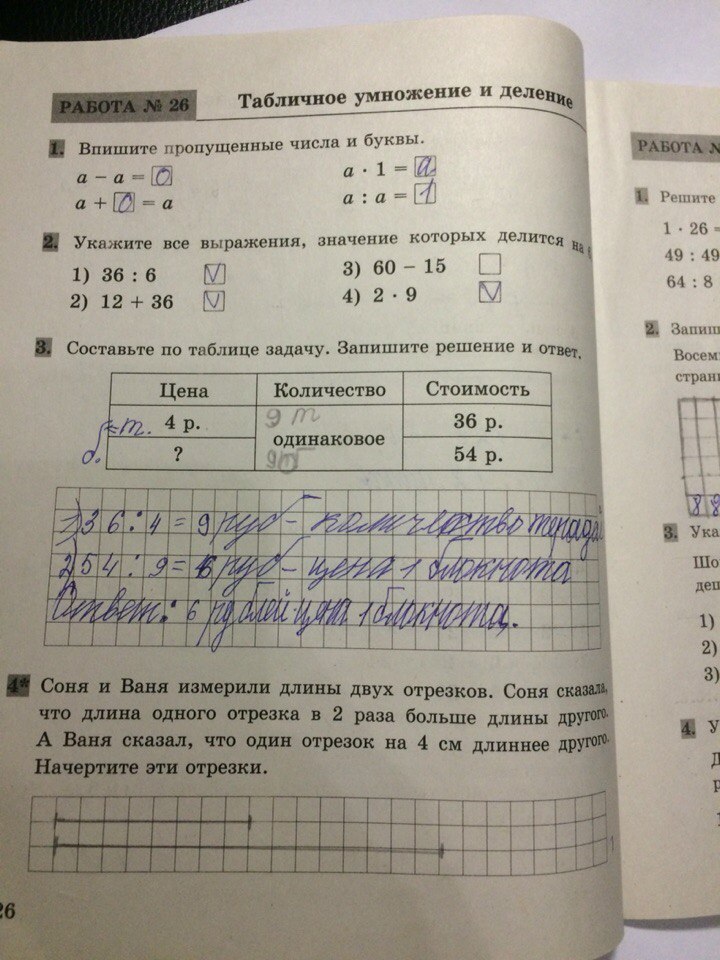 РАБОТА № 26
Табличное умножение и деление
1. Впишите пропущенные числа и буквы.
a − a = 0
a · 1 = a
a + 0 = a
a : a = 1
2. Укажите все выражения, значение которых делится на 6
1) 36 : 6 V
3) 60 − 15
2) 12 + 36 V
4) 2 · 9 V
3. Составьте по таблице задачу. Запишите решение и ответ.
Цена Количество Стоимость
т. 4 р. 9 т 36 р.
одинаковое
б. ? 9б 54 р.
1) 36 : 4 = 9 руб – количество тетрадей
2) 54 : 9 = 6 руб – цена 1 блокнота
Ответ: 6 рублей цена 1 блокнота.
4* Соня и Ваня измерили длины двух отрезков. Соня сказала,
что длина одного отрезка в 2 раза больше длины другого.
А Ваня сказал, что один отрезок на 4 см длиннее другого.
Начертите эти отрезки.
26
РАБОТА №
1. Решите
1 · 26 =
49 : 49
64 : 8
2. Запиш
Восем
страни
8 8
3. Ука
Шо
деш
1)
2)
3)
4. У
Д
р
1